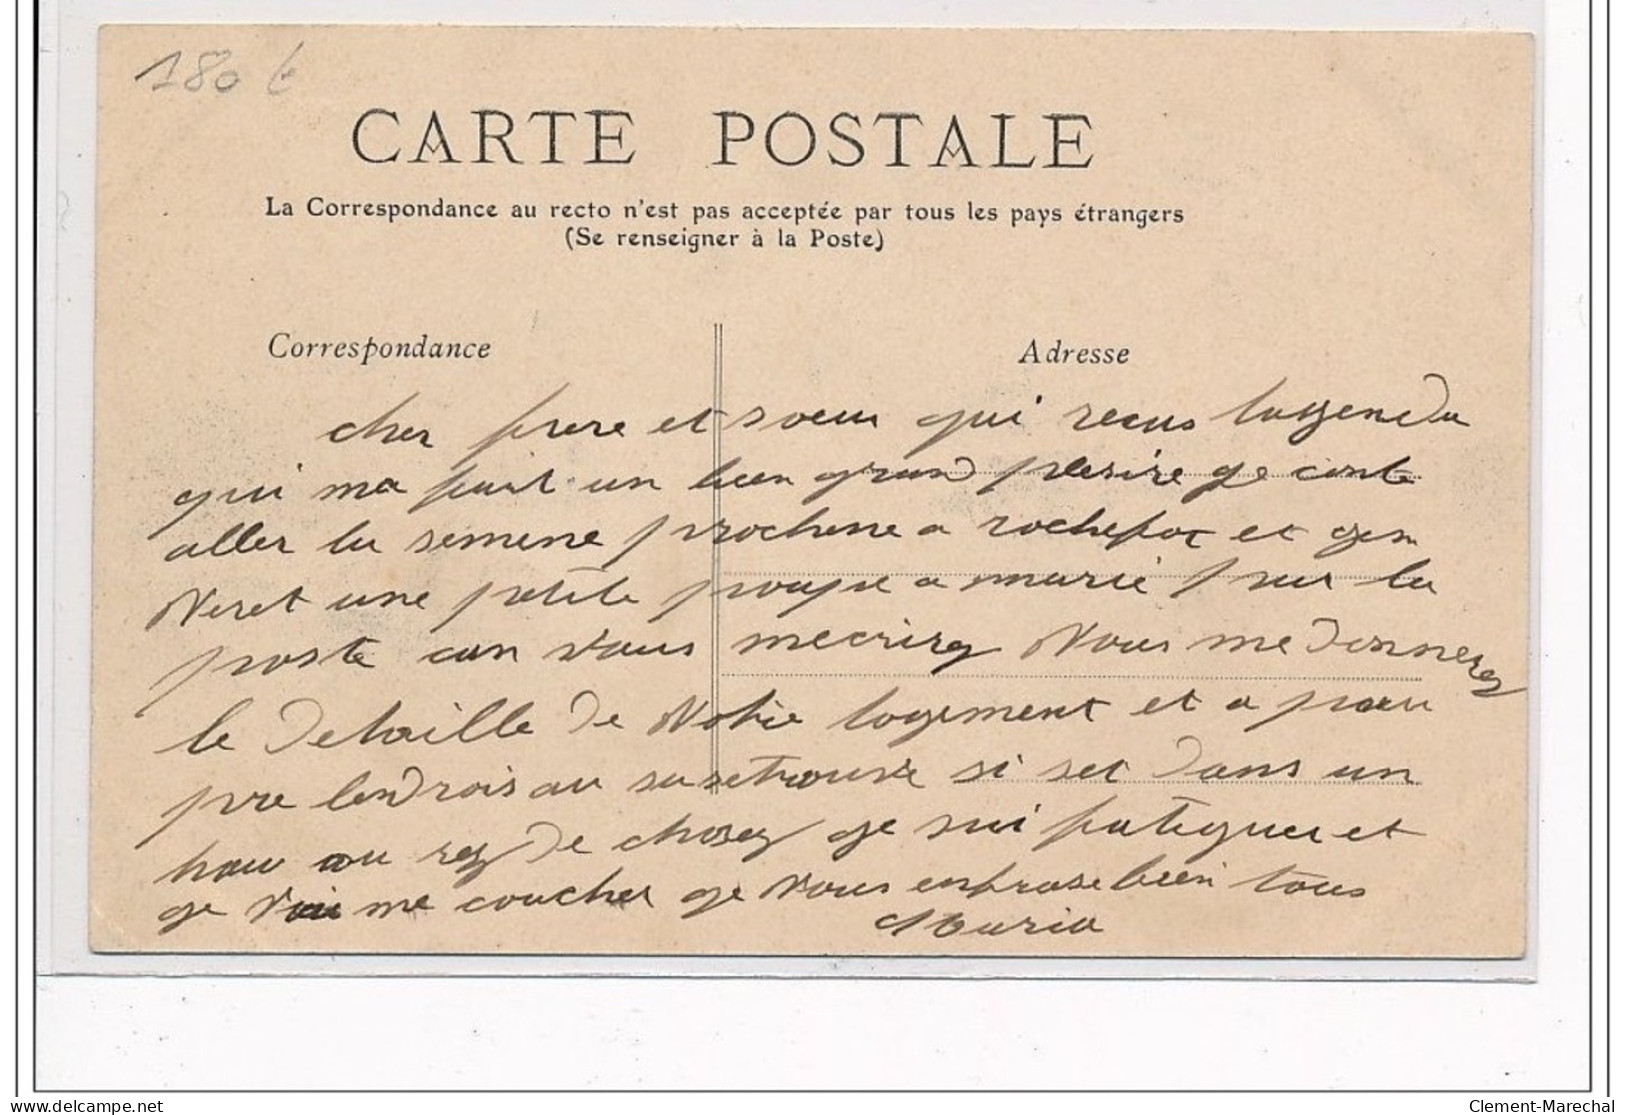 180 €
CARTE POSTALE
La Correspondance au recto n'est pas acceptée par tous les pays étrangers
(Se renseigner à la Poste)
Correspondance
Adresse
cher frere et soeur qui recus
qui ma fait un bien grand plesire ge conte
aller la semene prochene a rochefor et gen
Veret une petite poupe a marie par la
poste can vous mecrirez Vous me donnerez
le detaille de Votre logement et a peu
pre lendrois au su se trouve si set dans un
hau ou rez de chosez ge sui fatiguer et
ge Vai me coucher ge vous enbrase bien tous
Maria
Clement-Marechal
delcampe.net